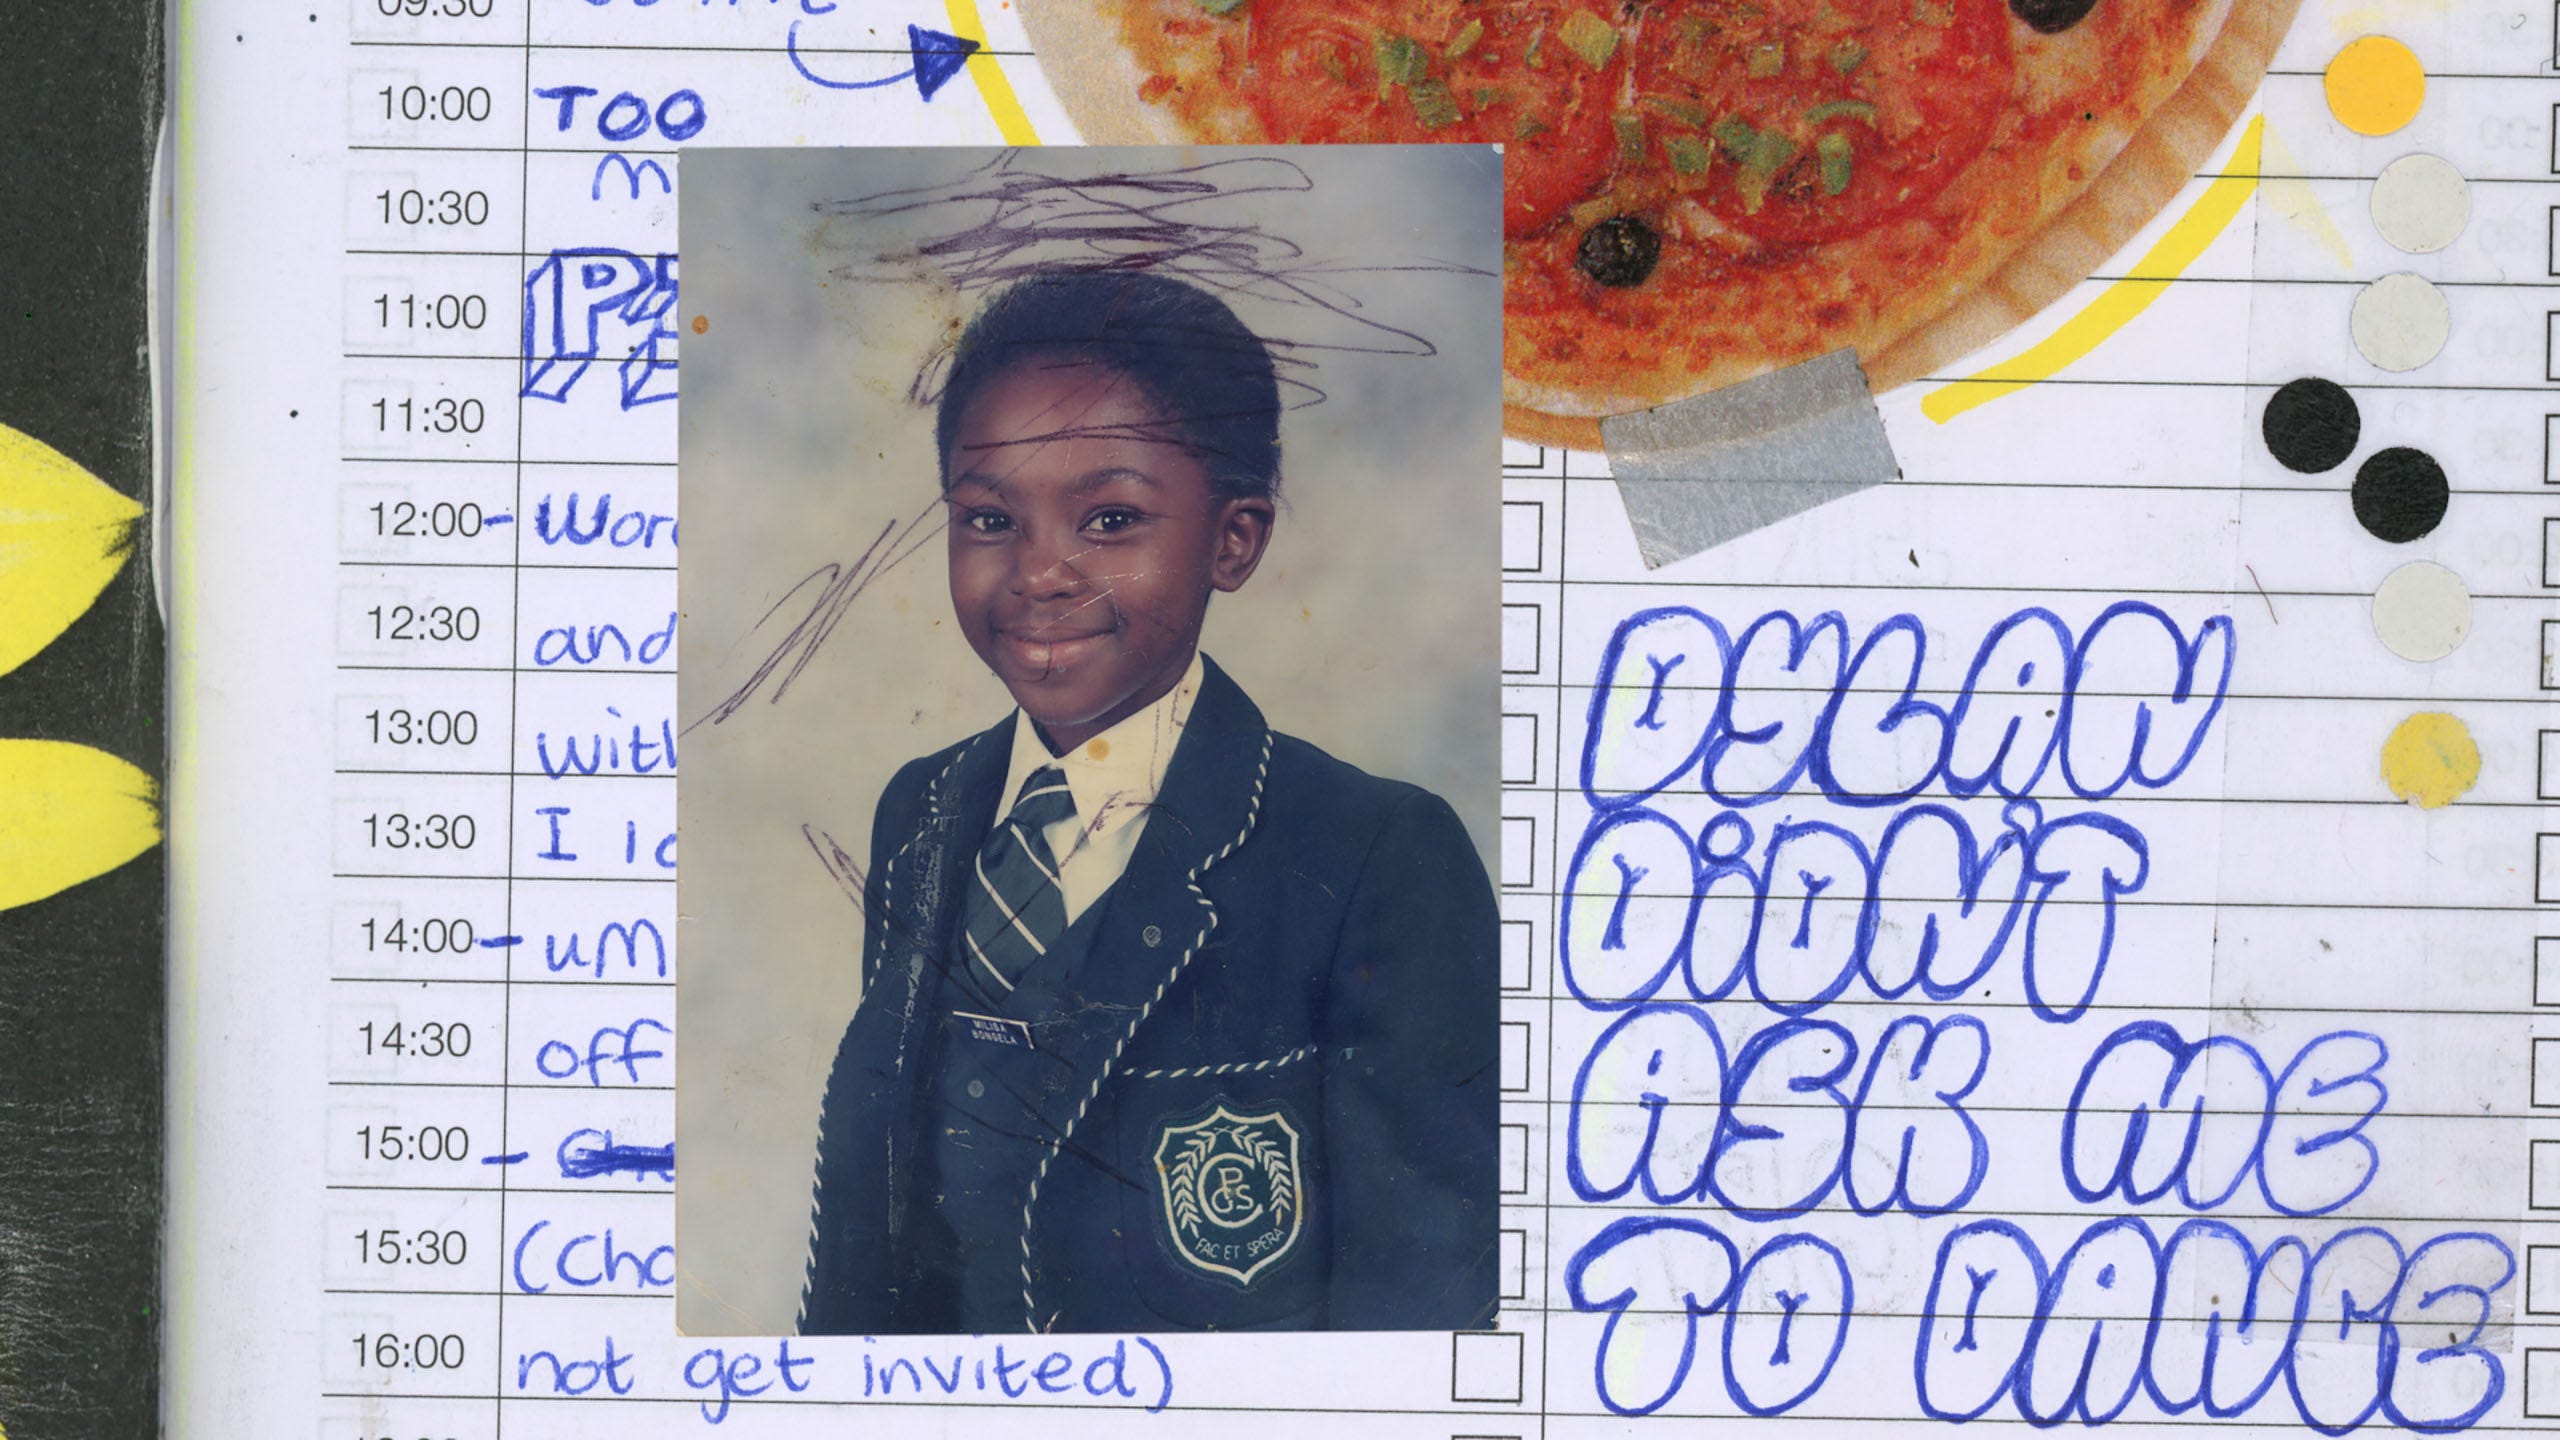 09:30
10:00 TOO
10:30 M
11:00
11:30
12:00 -
12:30 and
13:00
13:30 I
14:00 - um
14:30 off
15:00 -
15:30
16:00 not get invited)
MILISA
BONGELA
PCGS
FAC ET SPERA
DYLAN
DIDN'T
ASK ME
TO DANCE